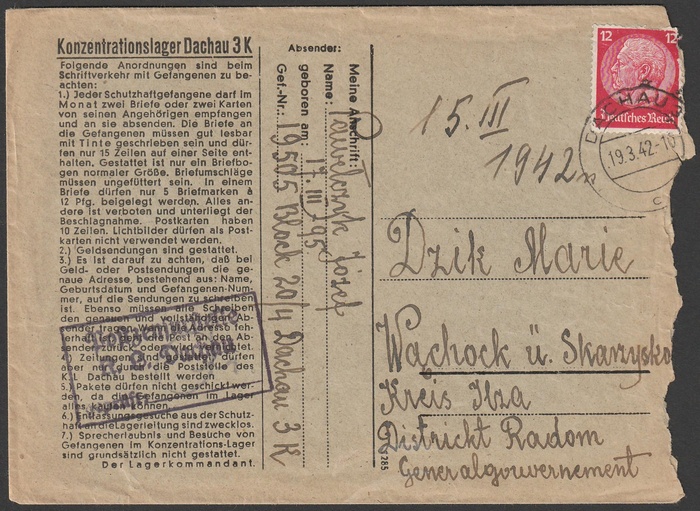 Konzentrationslager Dachau 3 K
Folgende Anordnungen sind beim
Schriftverkehr mit Gefangenen zu be-
achten:
1.) Jeder Schutzhaftgefangene darf im
Monat zwei Briefe oder zwei Karten
von seinen Angehörigen empfangen
und an sie absenden. Die Briefe an
die Gefangenen müssen gut lesbar
mit Tinte geschrieben sein und dür-
fen nur 15 Zeilen auf einer Seite ent-
halten. Gestattet ist nur ein Briefbo-
gen normaler Größe. Briefumschläge
müssen ungefüttert sein. In einem
Briefe dürfen nur 5 Briefmarken à
12 Pfg. beigelegt werden. Alles an-
dere ist verboten und unterliegt der
Beschlagnahme. Postkarten haben
10 Zeilen. Lichtbilder dürfen als Post-
karten nicht verwendet werden.
2.) Geldsendungen sind gestattet.
3.) Es ist darauf zu achten, daß bei
Geld- oder Postsendungen die ge-
naue Adresse bestehend aus: Name,
Geburtsdatum und Gefangenen-Num-
mer, auf die Sendungen zu schreiben
ist. Ebenso müssen alle Schreiben
den genauen und vollständigen Ab-
sender tragen. Wenn die Adresse feh-
lerhaft ist, geht die Post an den Ab-
sender zurück oder wird vernichtet.
4.) Zeitungen sind gestattet, dürfen
aber nur durch die Poststelle des
K. L. Dachau bestellt werden.
5.) Pakete dürfen nicht geschickt wer-
den, da die Gefangenen im Lager
alles kaufen können.
6.) Entlassungsgesuche aus der Schutz-
haft an die Lagerleitung sind zwecklos.
7.) Sprecherlaubnis und Besuche von
Gefangenen im Konzentrations-Lager
sind grundsätzlich nicht gestattet.
Der Lagerkommandant.
Absender:
Meine Anschrift:
Name: Józef
geboren am: 17. III
Gef.-Nr.: 19505 Block 20/4 Dachau 3 K
15. III
1942
12 12
Deutsches Reich
DACHAU
19.3.42
c
Dzik Marie
Wachock ü. Skarzysko
Kreis Ilza
Districkt Radom
Generalgouwernement
285